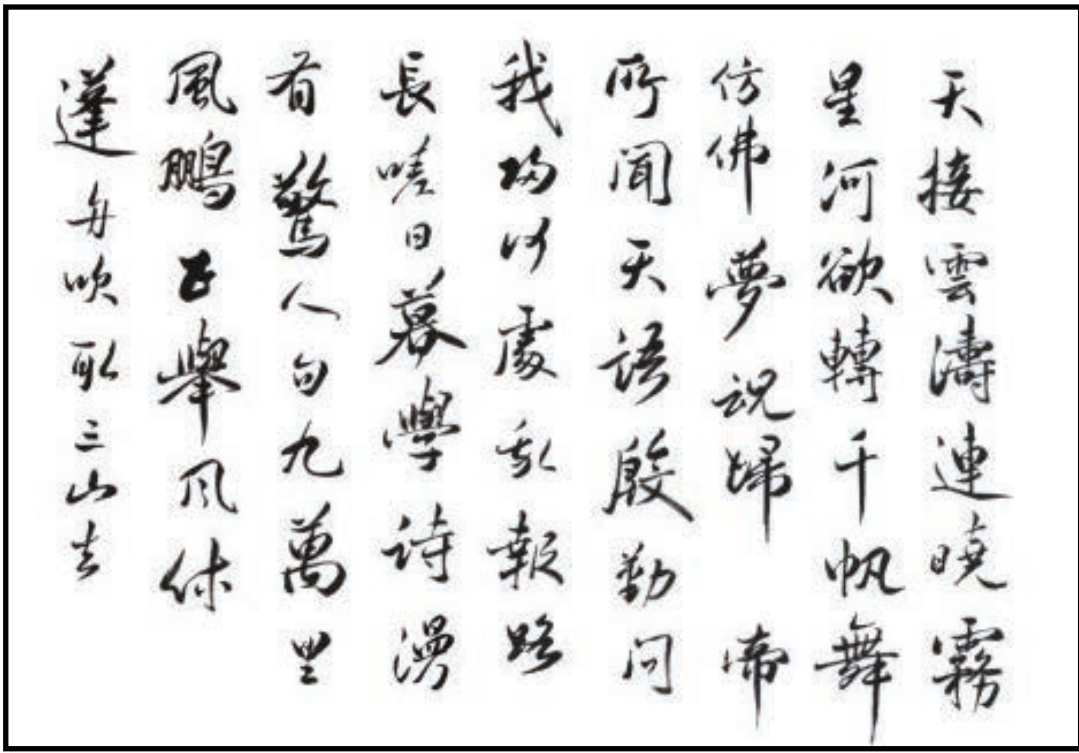 天接雲濤連曉霧
星河欲轉千帆舞
仿佛夢魂歸帝
所聞天語殷勤問
我歸何處我報路
長嗟日暮學詩漫
有驚人句九萬里
風鵬正舉風休
蓬舟吹取三山去